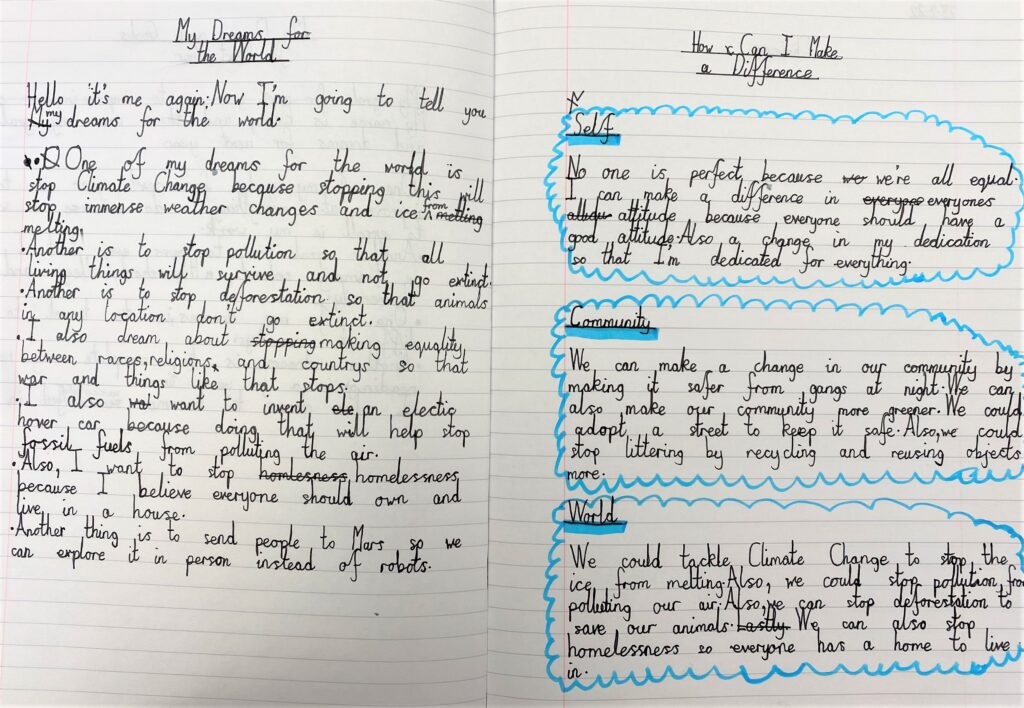 My Dreams for
the World
Hello it's me again. Now I'm going to tell you
my dreams for the world.
One of my dreams for the world is
stop Climate Change because stopping this will
stop immense weather changes and ice from melting
melting.
•Another is to stop pollution so that all
living things will survive and not go extinct.
•Another is to stop deforestation so that animals
in any location don't go extinct.
•I also dream about stopping making equality
between races, religions, and countrys so that
war and things like that stops.
•I also want to invent an electic
hover car because doing that will help stop
fossil fuels from polluting the air.
•Also, I want to stop homlesness homelessness
because I believe everyone should own and
live in a house.
•Another thing is to send people to Mars so we
can explore it in person instead of robots.
How Can I Make
a Difference
Self
No one is perfect because we we're all equal.
I can make a difference in everyones
attitude because everyone should have a
good attitude. Also a change in my dedication
so that I'm dedicated for everything.
Community
We can make a change in our community by
making it safer from gangs at night. We can
also make our community more greener. We could
adopt a street to keep it safe. Also, we could
stop littering by recycling and reusing objects
more.
World
We could tackle Climate Change to stop the
ice from melting. Also, we could stop pollution, from
polluting our air. Also, we can stop deforestation to
save our animals. Lastly We can also stop
homelessness so everyone has a home to live
in.